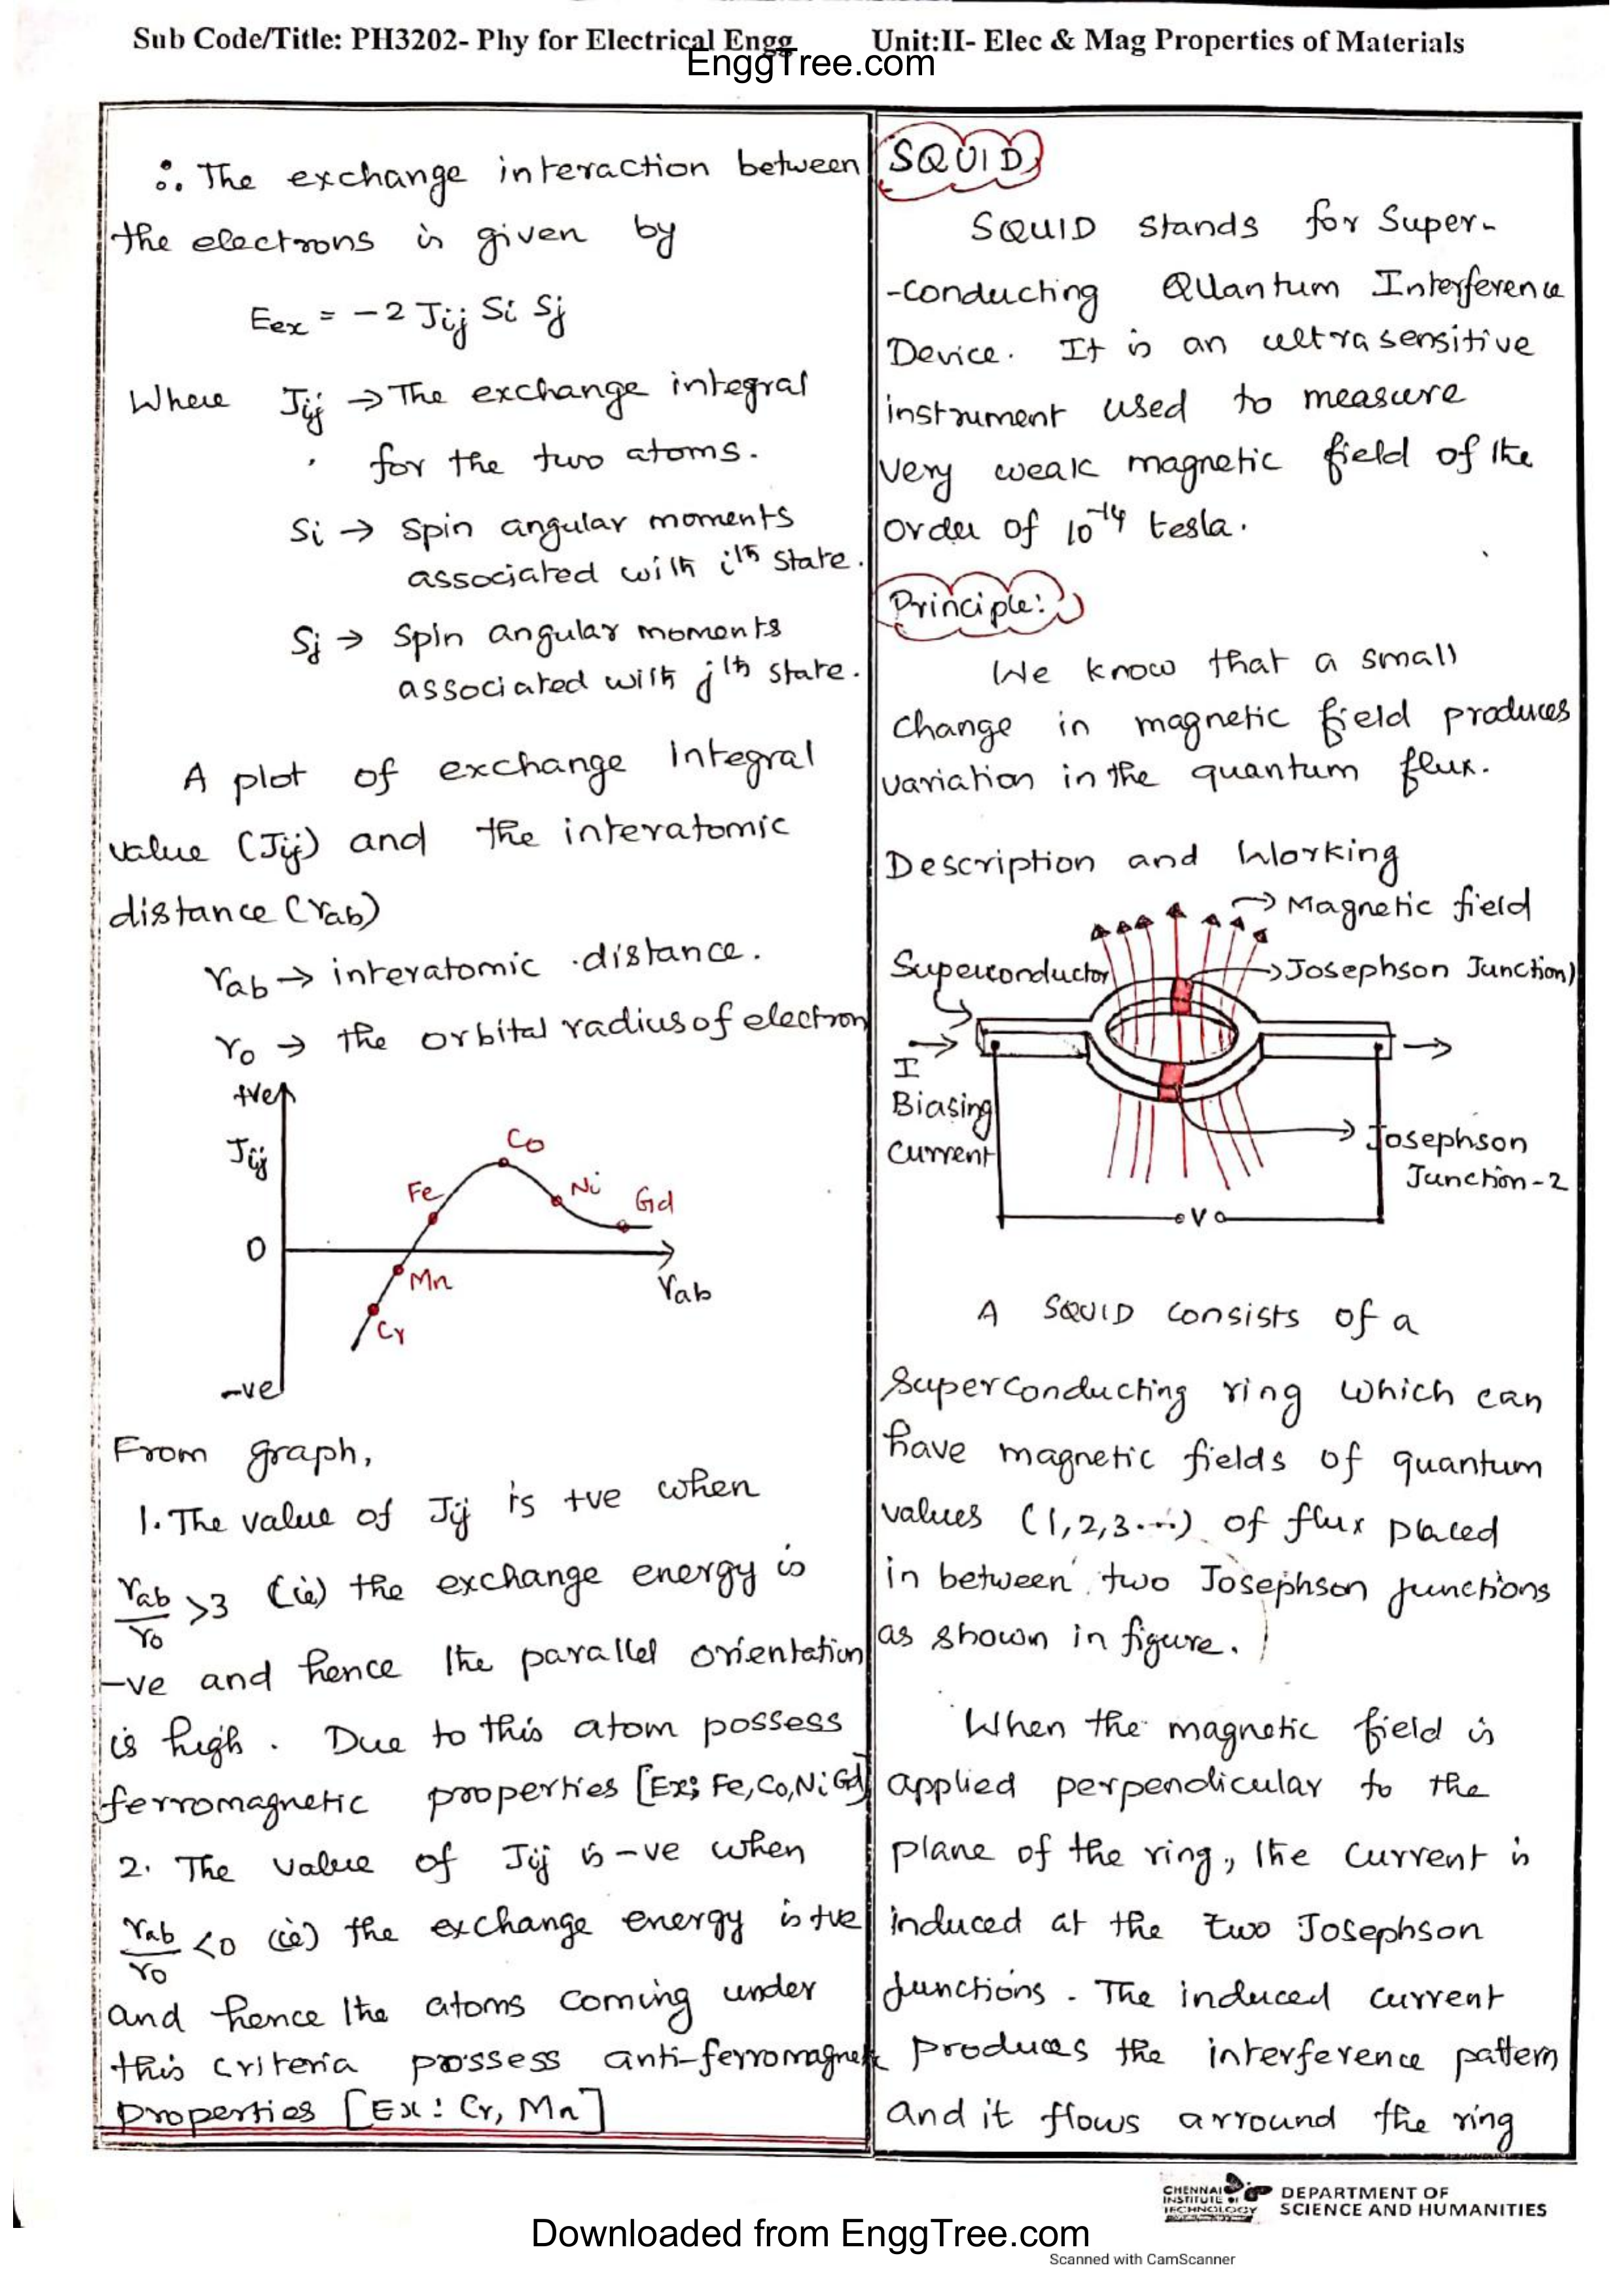 Sub Code/Title: PH3202- Phy for Electrical Engg
Unit:II- Elec & Mag Properties of Materials
EnggTree.com
∴ The exchange interaction between
the electrons is given by
Eex = -2 Jij Si Sj
Where Jij → The exchange integral
for the two atoms.
Si → Spin angular moments
associated with ith state.
Sj → Spin angular moments
associated with jth state.
A plot of exchange Integral
value (Jij) and the interatomic
distance (rab)
rab → interatomic distance.
ro → the orbital radius of electron
+ve
Jij
Co
Fe
Ni
Gd
0
Mn
rab
Cr
-ve
From graph,
1. The value of Jij is +ve when
rab/ro >3 (ie) the exchange energy is
-ve and hence the parallel orientation
is high. Due to this atom possess
ferromagnetic properties [Ex; Fe, Co, Ni Gd]
2. The value of Jij is -ve when
rab/ro <0 (ie) the exchange energy is +ve
and hence the atoms coming under
this criteria possess anti-ferromagnetic
properties [Ex: Cr, Mn]
SQUID
SQUID stands for Super-
-conducting Quantum Interference
Device. It is an ultrasensitive
instrument used to measure
very weak magnetic field of the
order of 10⁻¹⁴ tesla.
Principle:
We know that a small
change in magnetic field produces
variation in the quantum flux.
Description and Working
Magnetic field
Superconductor
Josephson Junction)
I
Biasing
Current
Josephson
Junction-2
V
A SQUID consists of a
Superconducting ring which can
have magnetic fields of quantum
values (1,2,3....) of flux placed
in between two Josephson junctions
as shown in figure.
When the magnetic field is
applied perpendicular to the
plane of the ring, the current is
induced at the two Josephson
junctions. The induced current
produces the interference pattern
and it flows arround the ring
CHENNAI
INSTITUTE OF
TECHNOLOGY
DEPARTMENT OF
SCIENCE AND HUMANITIES
Downloaded from EnggTree.com
Scanned with CamScanner